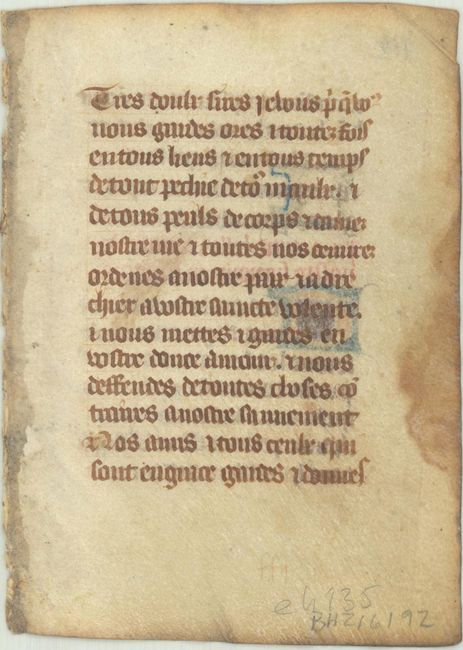 Tres doulz sires je vous pri q̃ vo9
nous gardes ores ⁊ toutez fois
en tous liens ⁊ en tous temps
de tout pechie de to9 ⁊
de tous perils de corps ⁊ dame
nostre vie ⁊ toutes nos oeuurez
ordenes a nostre paix ⁊ adre
chier a vostre saincte volente.
⁊ nous mettes ⁊ gardes en
vostre douce amour. ⁊ nous
deffendes de toutes choses cõ
traires a nostre sauuement
Nos amis ⁊ tous ceulz qui
sont en grace gardes ⁊ donnes
eh 135
BH216192